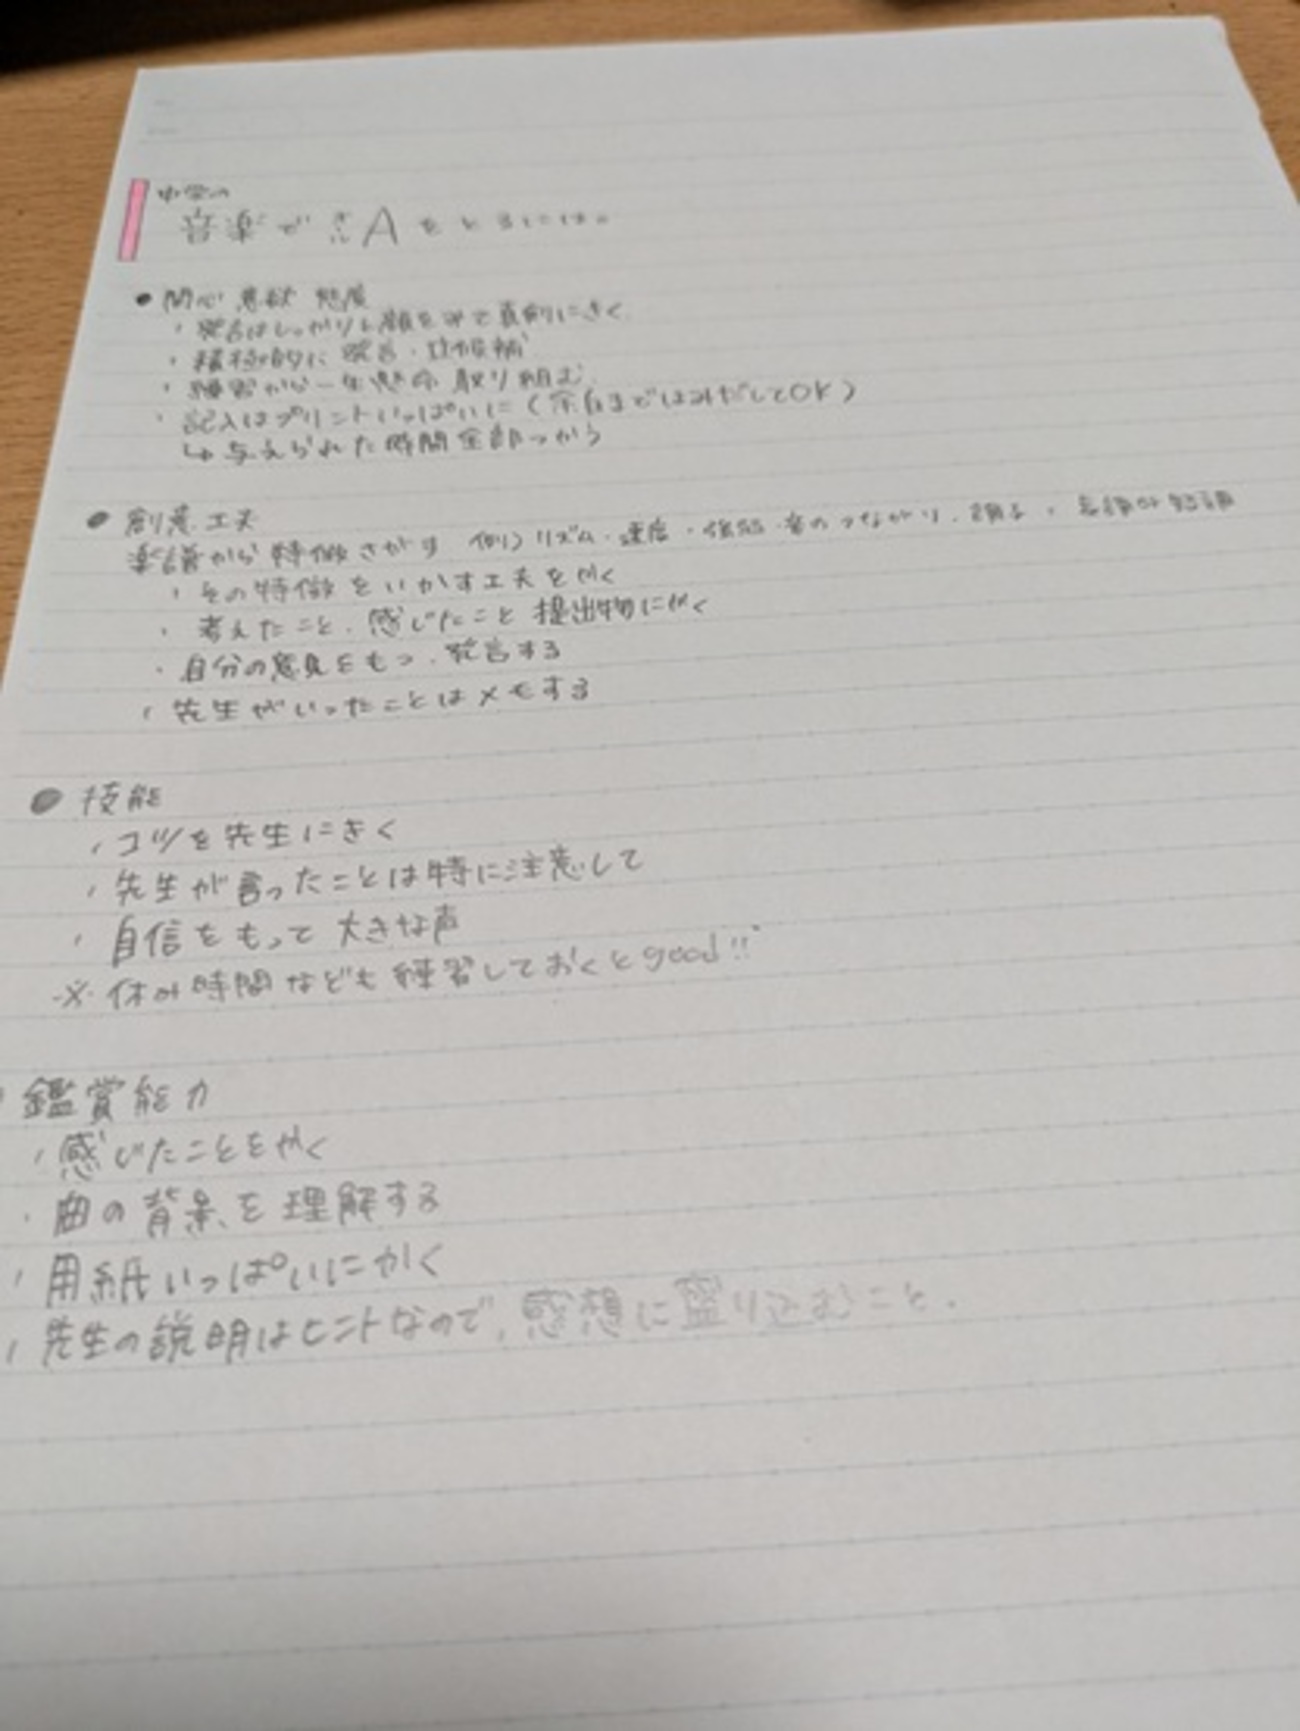 中学の
音楽で Aをとるには。
● 関心 意欲 態度
・発言はしっかりと顔をみて真剣にきく
・積極的に発言・立候補
・練習から一生懸命取り組む
・記入はプリントいっぱいに(余白まではみだしてOK)
↳与えられた時間全部つかう
● 創意工夫
楽譜から特徴さがす 例)リズム・速度・強弱・音のつながり・調子・
・その特徴をいかす工夫をかく
・考えたこと、感じたこと 提出物にかく
・自分の意見をもつ、発言する
・先生がいったことはメモする
● 技能
・コツを先生にきく
・先生が言ったことは特に注意して
・自信をもって大きな声
※休み時間なども練習しておくとgood!!
鑑賞能力
・感じたことをかく
・曲の背景を理解する
・用紙いっぱいにかく
・先生の説明はヒントなので、感想に盛り込むこと.